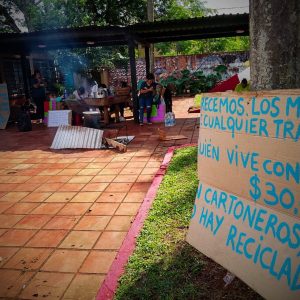 RECEMOS LOS M
CUALQUIER TRA
UIEN VIVE CON
$30
CARTONEROS
HAY RECICLA